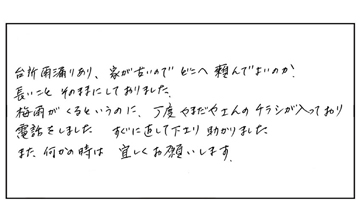 台所雨漏りあり、家が古いので どこへ 頼んでよいのか?
長いこと そのままにしておりました。
梅雨がくるというのに、丁度やまだやさんのチラシが入っており
電話をしました すぐに直して下さり 助かりました
また 何かの時は 宜しくお願いします。